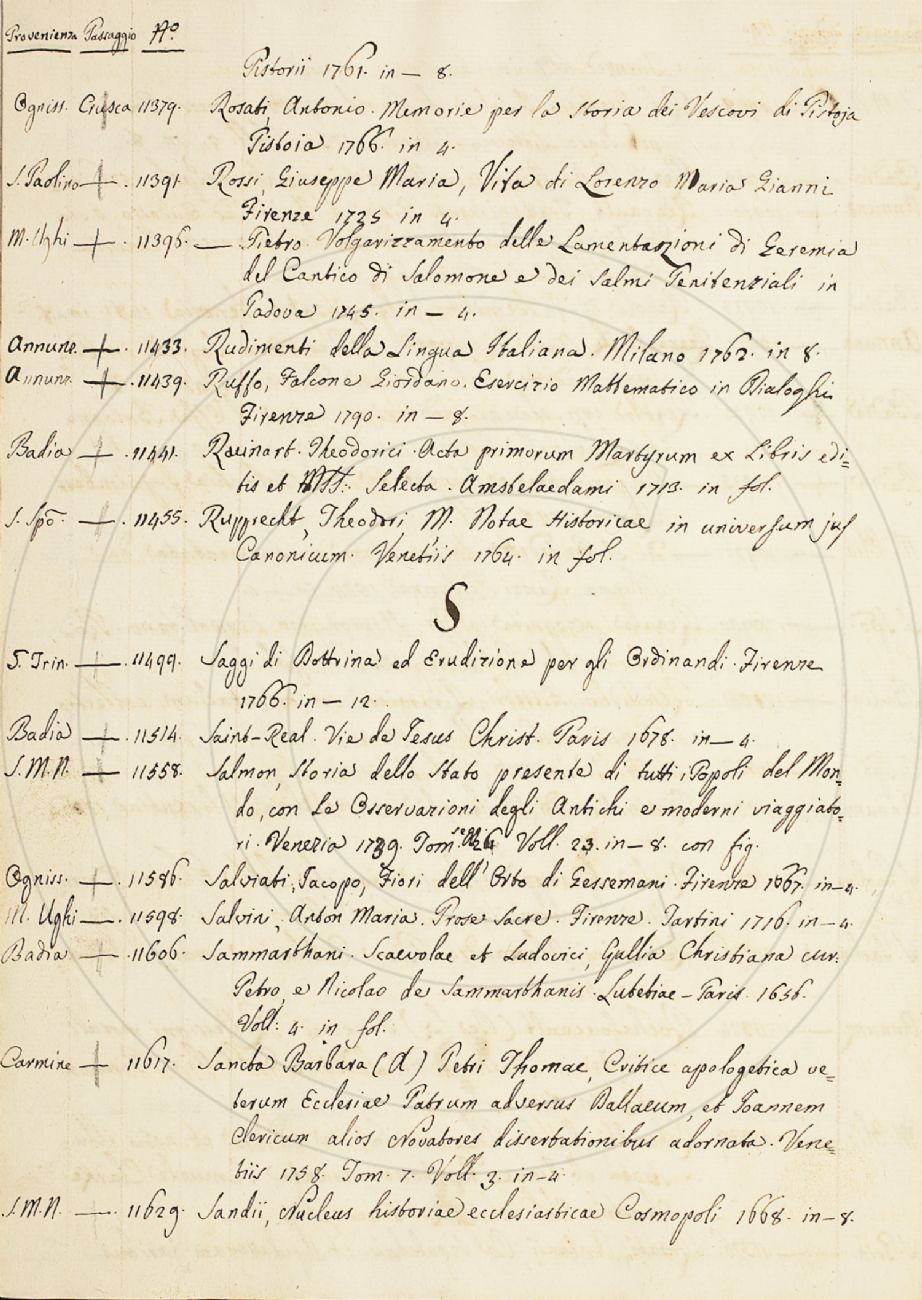 Provenienza Passaggio N.o
Pistorii 1761. in – 8.
Ogniss. Crusca 11379. Rosati, Antonio. Memorie per la Storia dei Vescovi di Pistoja
Pistoia 1766. in 4.
S. Paolino + . 11391 Rossi, Giuseppe Maria, Vita di Lorenzo Maria Gianni
Firenze 1725 in 4.
M. Ughi + . 11396. — Pietro. Volgarizzamento delle Lamentazioni di Geremia
del Cantico di Salomone e dei Salmi Penitenziali in
Padova 1745. in – 4.
Annunz. + . 11433. Rudimenti della Lingua Italiana. Milano 1762. in 8.
Annunz. + . 11439. Ruffo, Falcone Giordano. Esercizio Mattematico in Dialoghi
Firenze 1790. in – 8.
Badia + . 11441. Ruinart. Theodorici. Acta primorum Martyrum ex Libris edi=
tis et MSS. Selecta. Amstelaedami 1713. in fol.
S. Spõ. + . 11455. Rupprecht, Theodori M. Notae Historicae in universum jus
Canonicum. Venetiis 1764. in fol.
S
S. Trin. + . 11499. Saggi di Dottrina ed Erudizione per gli Ordinandi. Firenze
1766. in – 12.
Badia + . 11514. Saint-Real. Vie de Jesus Christ. Paris 1678. in – 4.
S. M. N. + 11558. Salmon, Storia dello Stato presente di tutti i Popoli del Mon=
do, con Le Osservazioni degli Antichi e moderni viaggiato=
ri. Venezia 1739. Tom. 26 Voll. 23. in – 8. con fig.
Ogniss. + . 11586. Salviati, Jacopo, Fiori dell' Orto di Gessemani. Firenze 1667. in – 4.
M. Ughi — . 11598. Salvini, Anton Maria. Prose Sacre. Firenze. Tartini 1716. in – 4.
Badia + . 11606. Sammarthani. Scaevolae et Ludovici, Gallia Christiana cur.
Petro, e Nicolao de Sammarthanis. Lutetiae – Paris. 1656.
Voll: 4. in fol.
Carmine + 11617. Sancta Barbara (A) Petri Thomae, Critice apologetica ve=
terum Ecclesiae Patrum adversus Dallaeum, et Joannem
Clericum alios Novatores dissertationibus adornata. Vene=
tiis 1758. Tom. 7. Voll. 3. in – 4.
S. M. N. — . 11629. Sandii, Nucleus historiae ecclesiasticae Cosmopoli 1668. in – 8.